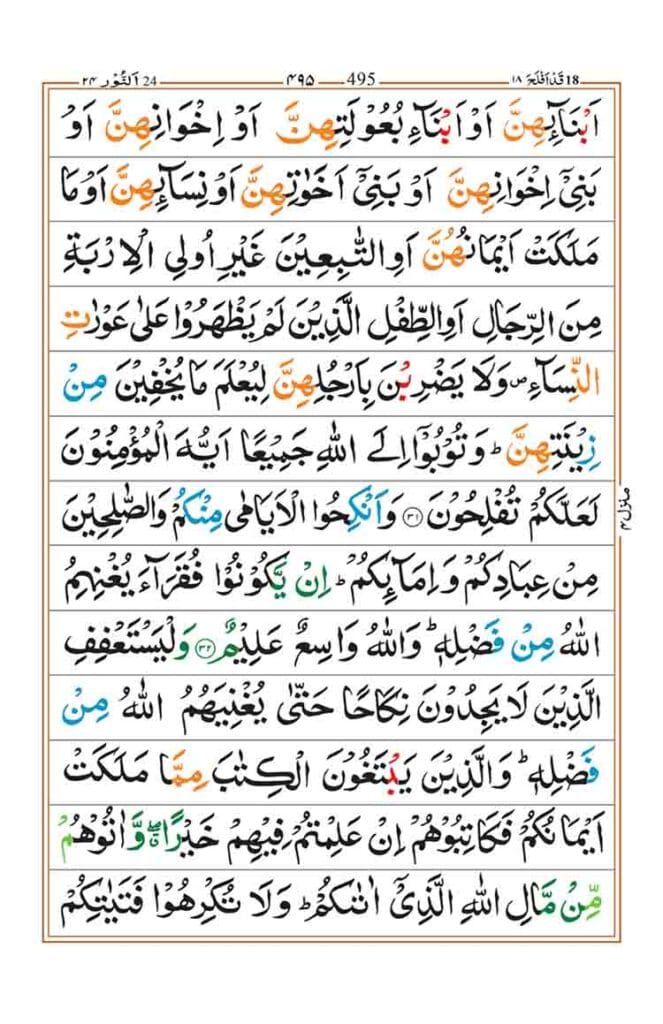 18 قَدْ اَفْلَحَ ۱۸ 495 ۴۹۵ 24 اَلنُّوْر ۲۴
اَبْنَآئِهِنَّ اَوْ اَبْنَآءِ بُعُوْلَتِهِنَّ اَوْ اِخْوَانِهِنَّ اَوْ
بَنِيْۤ اِخْوَانِهِنَّ اَوْ بَنِيْۤ اَخَوٰتِهِنَّ اَوْ نِسَآئِهِنَّ اَوْ مَا
مَلَكَتْ اَيْمَانُهُنَّ اَوِ التّٰبِعِيْنَ غَيْرِ اُولِي الْاِرْبَةِ
مِنَ الرِّجَالِ اَوِ الطِّفْلِ الَّذِيْنَ لَمْ يَظْهَرُوْا عَلٰى عَوْرٰتِ
النِّسَآءِ ۪ وَلَا يَضْرِبْنَ بِاَرْجُلِهِنَّ لِيُعْلَمَ مَا يُخْفِيْنَ مِنْ
زِيْنَتِهِنَّ ؕ وَتُوْبُوْۤا اِلَى اللّٰهِ جَمِيْعًا اَيُّهَ الْمُؤْمِنُوْنَ
لَعَلَّكُمْ تُفْلِحُوْنَ ۝۳۱ وَاَنْكِحُوا الْاَيَامٰى مِنْكُمْ وَالصّٰلِحِيْنَ
مِنْ عِبَادِكُمْ وَاِمَآئِكُمْ ؕ اِنْ يَّكُوْنُوْا فُقَرَآءَ يُغْنِهِمُ
اللّٰهُ مِنْ فَضْلِهٖ ؕ وَاللّٰهُ وَاسِعٌ عَلِيْمٌ ۝۳۲ وَلْيَسْتَعْفِفِ
الَّذِيْنَ لَا يَجِدُوْنَ نِكَاحًا حَتّٰى يُغْنِيَهُمُ اللّٰهُ مِنْ
فَضْلِهٖ ؕ وَالَّذِيْنَ يَبْتَغُوْنَ الْكِتٰبَ مِمَّا مَلَكَتْ
اَيْمَانُكُمْ فَكَاتِبُوْهُمْ اِنْ عَلِمْتُمْ فِيْهِمْ خَيْرًا ۖۗ وَّاٰتُوْهُمْ
مِّنْ مَّالِ اللّٰهِ الَّذِيْۤ اٰتٰىكُمْ ؕ وَلَا تُكْرِهُوْا فَتَيٰتِكُمْ
منزل ۴